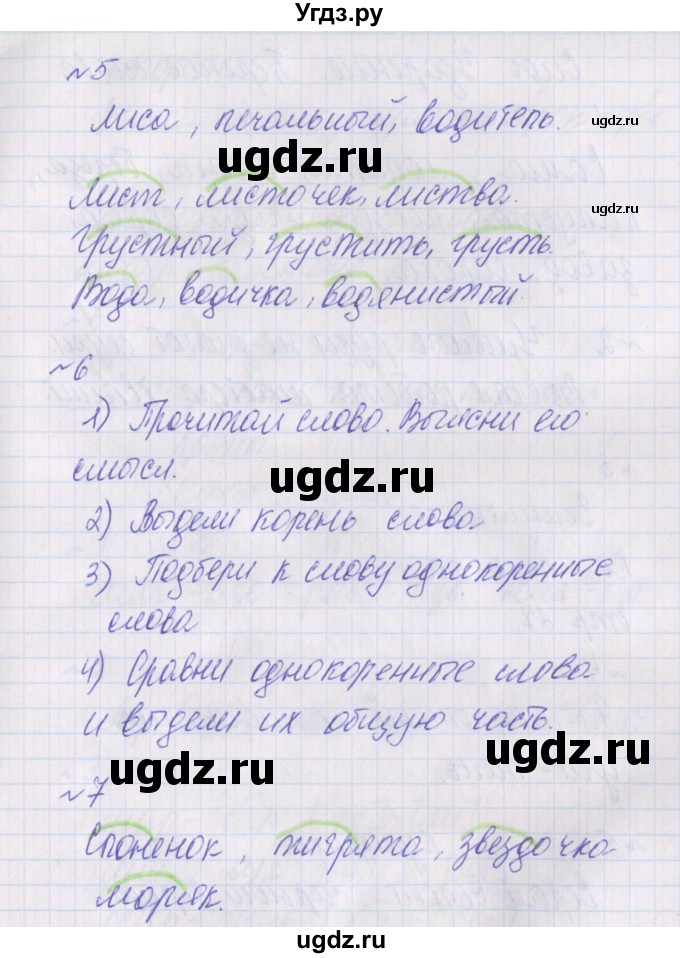 Угдз.ру
№5
ugdz.ru
Лиса, печальный, водитель.
ugdz.ru
Лист, листочек, листва.
ugdz.ru
Грустный, грустить, грусть.
Вода, водичка, водянистый.
№6
1) Прочитай слово. Выясни его
смысл.
ugdz.ru
2) Выдели корень слова
3) Подбери к слову однокоренные
слова
4) Сравни однокоренные слова
и выдели их общую часть.
ugdz.ru
ugdz.ru
№7
Слоненок, тигрята, звездочка
моряк.
ugdz.ru